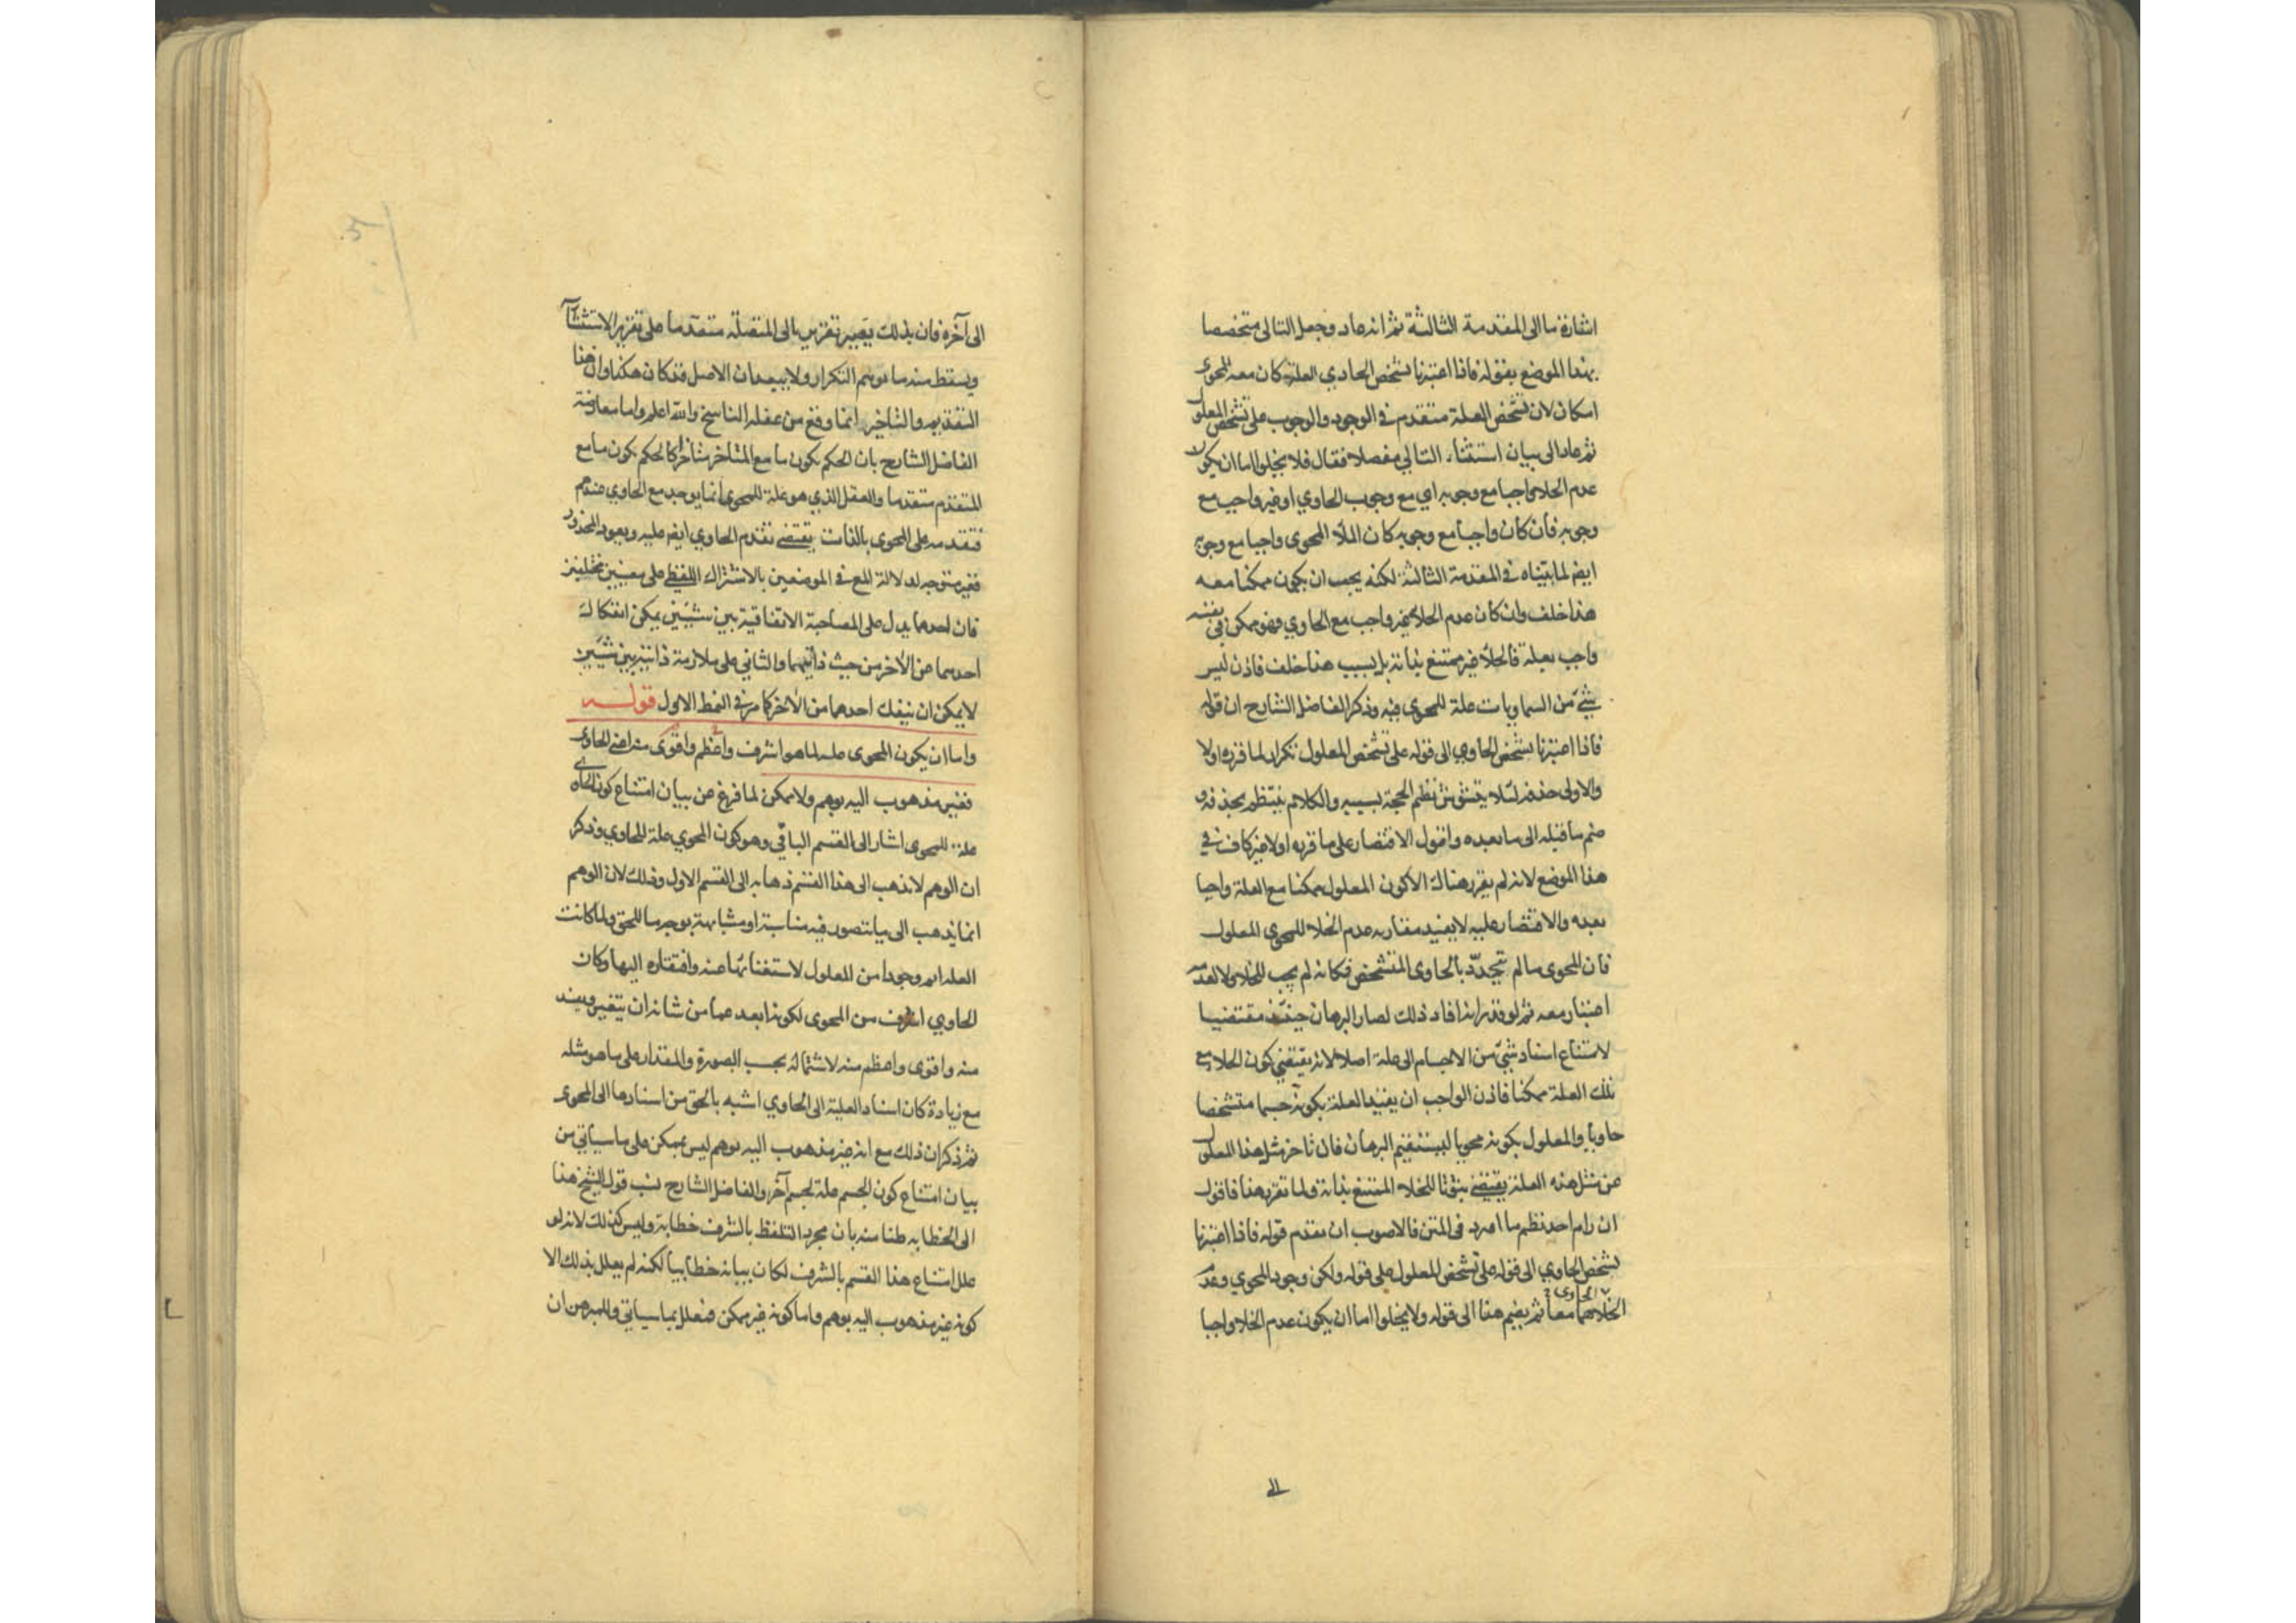 اشارة ما الى المقدمة الثالثة ثم انه عاد وجعل التالى متخصصا
بهذا الموضع بقوله فاذا اعتبرنا تشخص الحاوي العلة كان معه للمحوى
امكان لان تشخص العلة متقدم في الوجود والوجوب على تشخص المعلول
ثم عاد الى بيان استثناء التالي مفصلا فقال فلا يخلوا اما ان يكون
عدم الخلا واجبا مع وجوبه اي مع وجوب الحاوي او غير واجب مع
وجوبه فان كان واجبا مع وجوبه كان الملأ المحوى واجبا مع وجوبه
ايضا لما بيناه في المقدمة الثالثة لكنه يجب ان يكون ممكنا معه
هذا خلف وان كان عدم الخلا غير واجب مع الحاوي فهو ممكن في نفسه
واجب بعلة فالخلأ غير ممتنع بذاته بل بسبب هذا خلف فاذن ليس
شئ من السماويات علة للمحوى فيه وذكر الفاضل الشارح ان قوله
فاذا اعتبرنا تشخص الحاوي الى قوله على تشخص المعلول تكرار لما قرره اولا
والاولى حذفه لئلا يتشوش نظم الحجة بسببه والكلام ينتظم بحذفه و
ضم ما قبله الى ما بعده واقول الاقتصار على ما قرره اولا غير كاف في
هذا الموضع لانه لم يقرر هناك الا كون المعلول ممكنا مع العلة واجبا
بعده والاقتصار عليه لا يفيد مقارنه عدم الخلا للمحوى المعلول
فان المحوى ما لم يتحدد بالحاوى المتشخص فكانه لم يجب للخلا ولا لعدمه
اعتبار معه ثم لو قدر انه افاد ذلك لصار البرهان حينئذ مقتضيا
لامتناع اسناد شئ من الاجسام الى علة اصلا لانه يقتضي كون الخلا مع
تلك العلة ممكنا فاذن الواجب ان يقيد العلة بكونه جسما متشخصا
حاويا والمعلول بكونه محويا ليستقيم البرهان فان تاخر مثل هذا المعلول
عن مثل هذه العلة يقتضي ثبوتا للخلاء الممتنع بذاته ولما تقرر هذا فاقول
ان رام احد نظم ما اورد فى المتن فالاصوب ان يقدم قوله فاذا اعتبرنا
تشخص الحاوي الى قوله على تشخص المعلول على قوله ولكن وجود المحوي وعدم
الحاوى
الخلا هما معا ثم يضم هذا الى قوله ولا يخلوا اما ان يكون عدم الخلا واجبا
الى
الى آخره فان بذلك يصير تقرير تالى المتصلة متقدما على تقرير الاستثناء
ويسقط منه ما يوهم التكرار ولا يبعد ان الاصل قد كان هكذا وان هذا
التقديم والتاخير انما وقع من غفلة الناسخ والله اعلم واما معارضة
الفاضل الشارح بان الحكم بكون ما مع المتاخر متاخرا كالحكم بكون ما مع
المتقدم متقدما والعقل الذي هو علة للمحوى انما يوجد مع الحاوي عندهم
فتقدمه على المحوى بالذات يقتضي تقدم الحاوي ايضا عليه ويعود المحذور
فغير متوجه لدلالة المع في الموضعين بالاشتراك اللفظي على معنيين مختلفين
فان احدهما يدل على المصاحبة الاتفاقية بين شيئين يمكن انفكاك
احدهما عن الآخر من حيث ذاتيهما والثاني على ملازمة ذاتية بين شيئين
لا يمكن ان ينفك احدهما من الآخر كما مر في النمط الاول قوله
واما ان يكون المحوى علة لما هو اشرف واعظم واقوى منه اعني الحاوى
فغير مذهوب اليه بوهم ولا ممكن لما فرغ من بيان امتناع كون الحاوي
علة للمحوى اشار الى القسم الباقي وهو كون المحوي علة للحاوي وذكر
ان الوهم لا يذهب الى هذا القسم ذهابه الى القسم الاول وذلك لان الوهم
انما يذهب الى ما يتصور فيه مناسبة او مشابهة بوجه ما للحق ولما كانت
العلة اتم وجودا من المعلول لاستغنائها عنه وافتقاره اليها وكان
الحاوي اشرف من المحوى لكونه ابعد عما من شانه ان يتغير ويفسد
منه واقوى واعظم منه لاشتماله بحسب الصورة والمقدار على ما هو مثله
مع زيادة كان اسناد العلية الى الحاوي اشبه بالحق من اسنادها الى المحوى
ثم ذكر ان ذلك مع انه غير مذهوب اليه بوهم ليس بممكن على ما سياتي من
بيان امتناع كون الجسم علة لجسم آخر والفاضل الشارح نسب قول الشيخ هذا
الى الخطابه ظنا منه بان مجرد التلفظ بالشرف خطابة وليس كذلك لانه لو
علل امتناع هذا القسم بالشرف لكان بيانه خطابيا لكنه لم يعلل بذلك الا
كونه غير مذهوب اليه بوهم واما كونه غير ممكن فمعلل بما سياتي والمبرهن ان